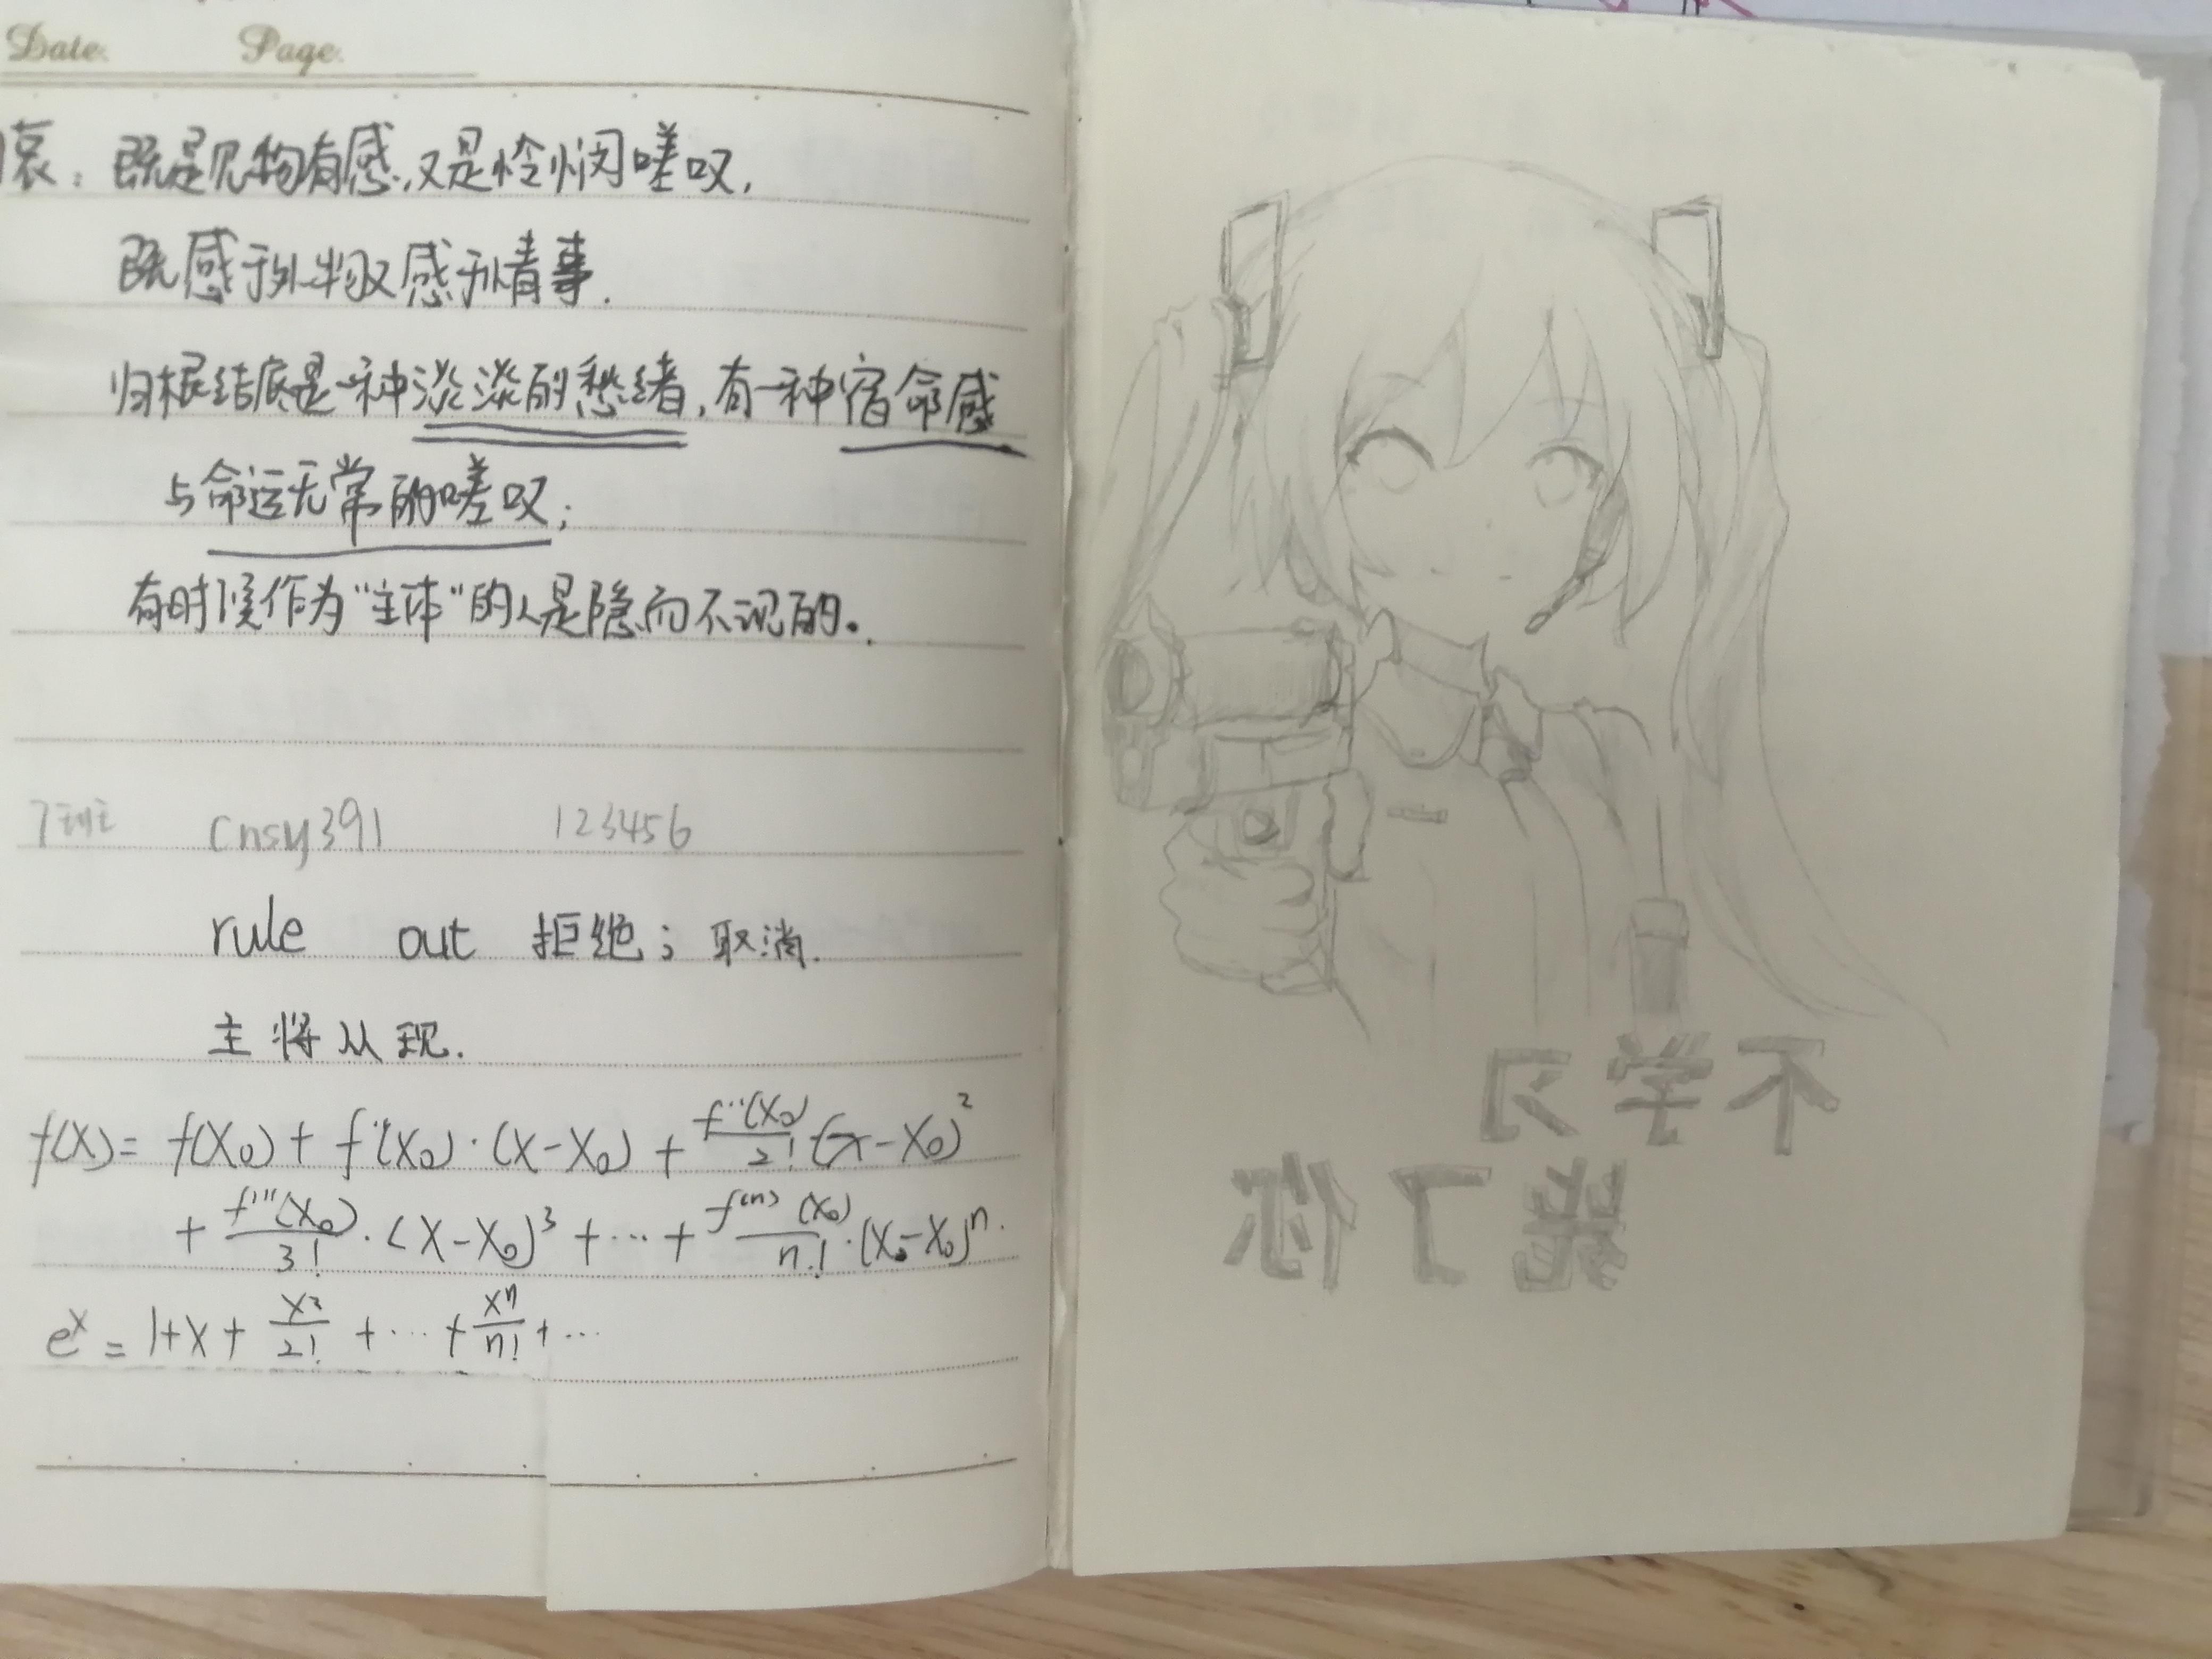 Date. Page.
哀：既是见物有感，又是怜悯嗟叹，
既感于外物又感于情事.
归根结底是一种淡淡的愁绪，有一种宿命感
与命运无常的嗟叹；
有时候作为“主体”的人是隐而不现的。
7班 cnsy391 123456
rule out 拒绝；取消.
主将从现.
f(x)= f(x₀)+ f'(x₀)·(x-x₀) + f''(x₀)/2! (x-x₀)²
+ f'''(x₀)/3! ·(x-x₀)³ +…+ f⁽ⁿ⁾(x₀)/n! ·(x₀-x₀)ⁿ.
eˣ = 1+x+ x²/2! +…+ xⁿ/n! +…
不学习
毙了你